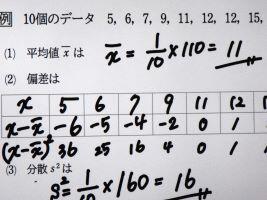 例 10個のデータ 5, 6, 7, 9, 11, 12, 12, 15,
(1) 平均値 x̄ は x̄ = 1/10 × 110 = 11
(2) 偏差は
x 5 6 7 9 11 12
x-x̄ -6 -5 -4 -2 0 1
(x-x̄)² 36 25 16 4 0 1
(3) 分散 s² は
s² = 1/10 × 160 = 16